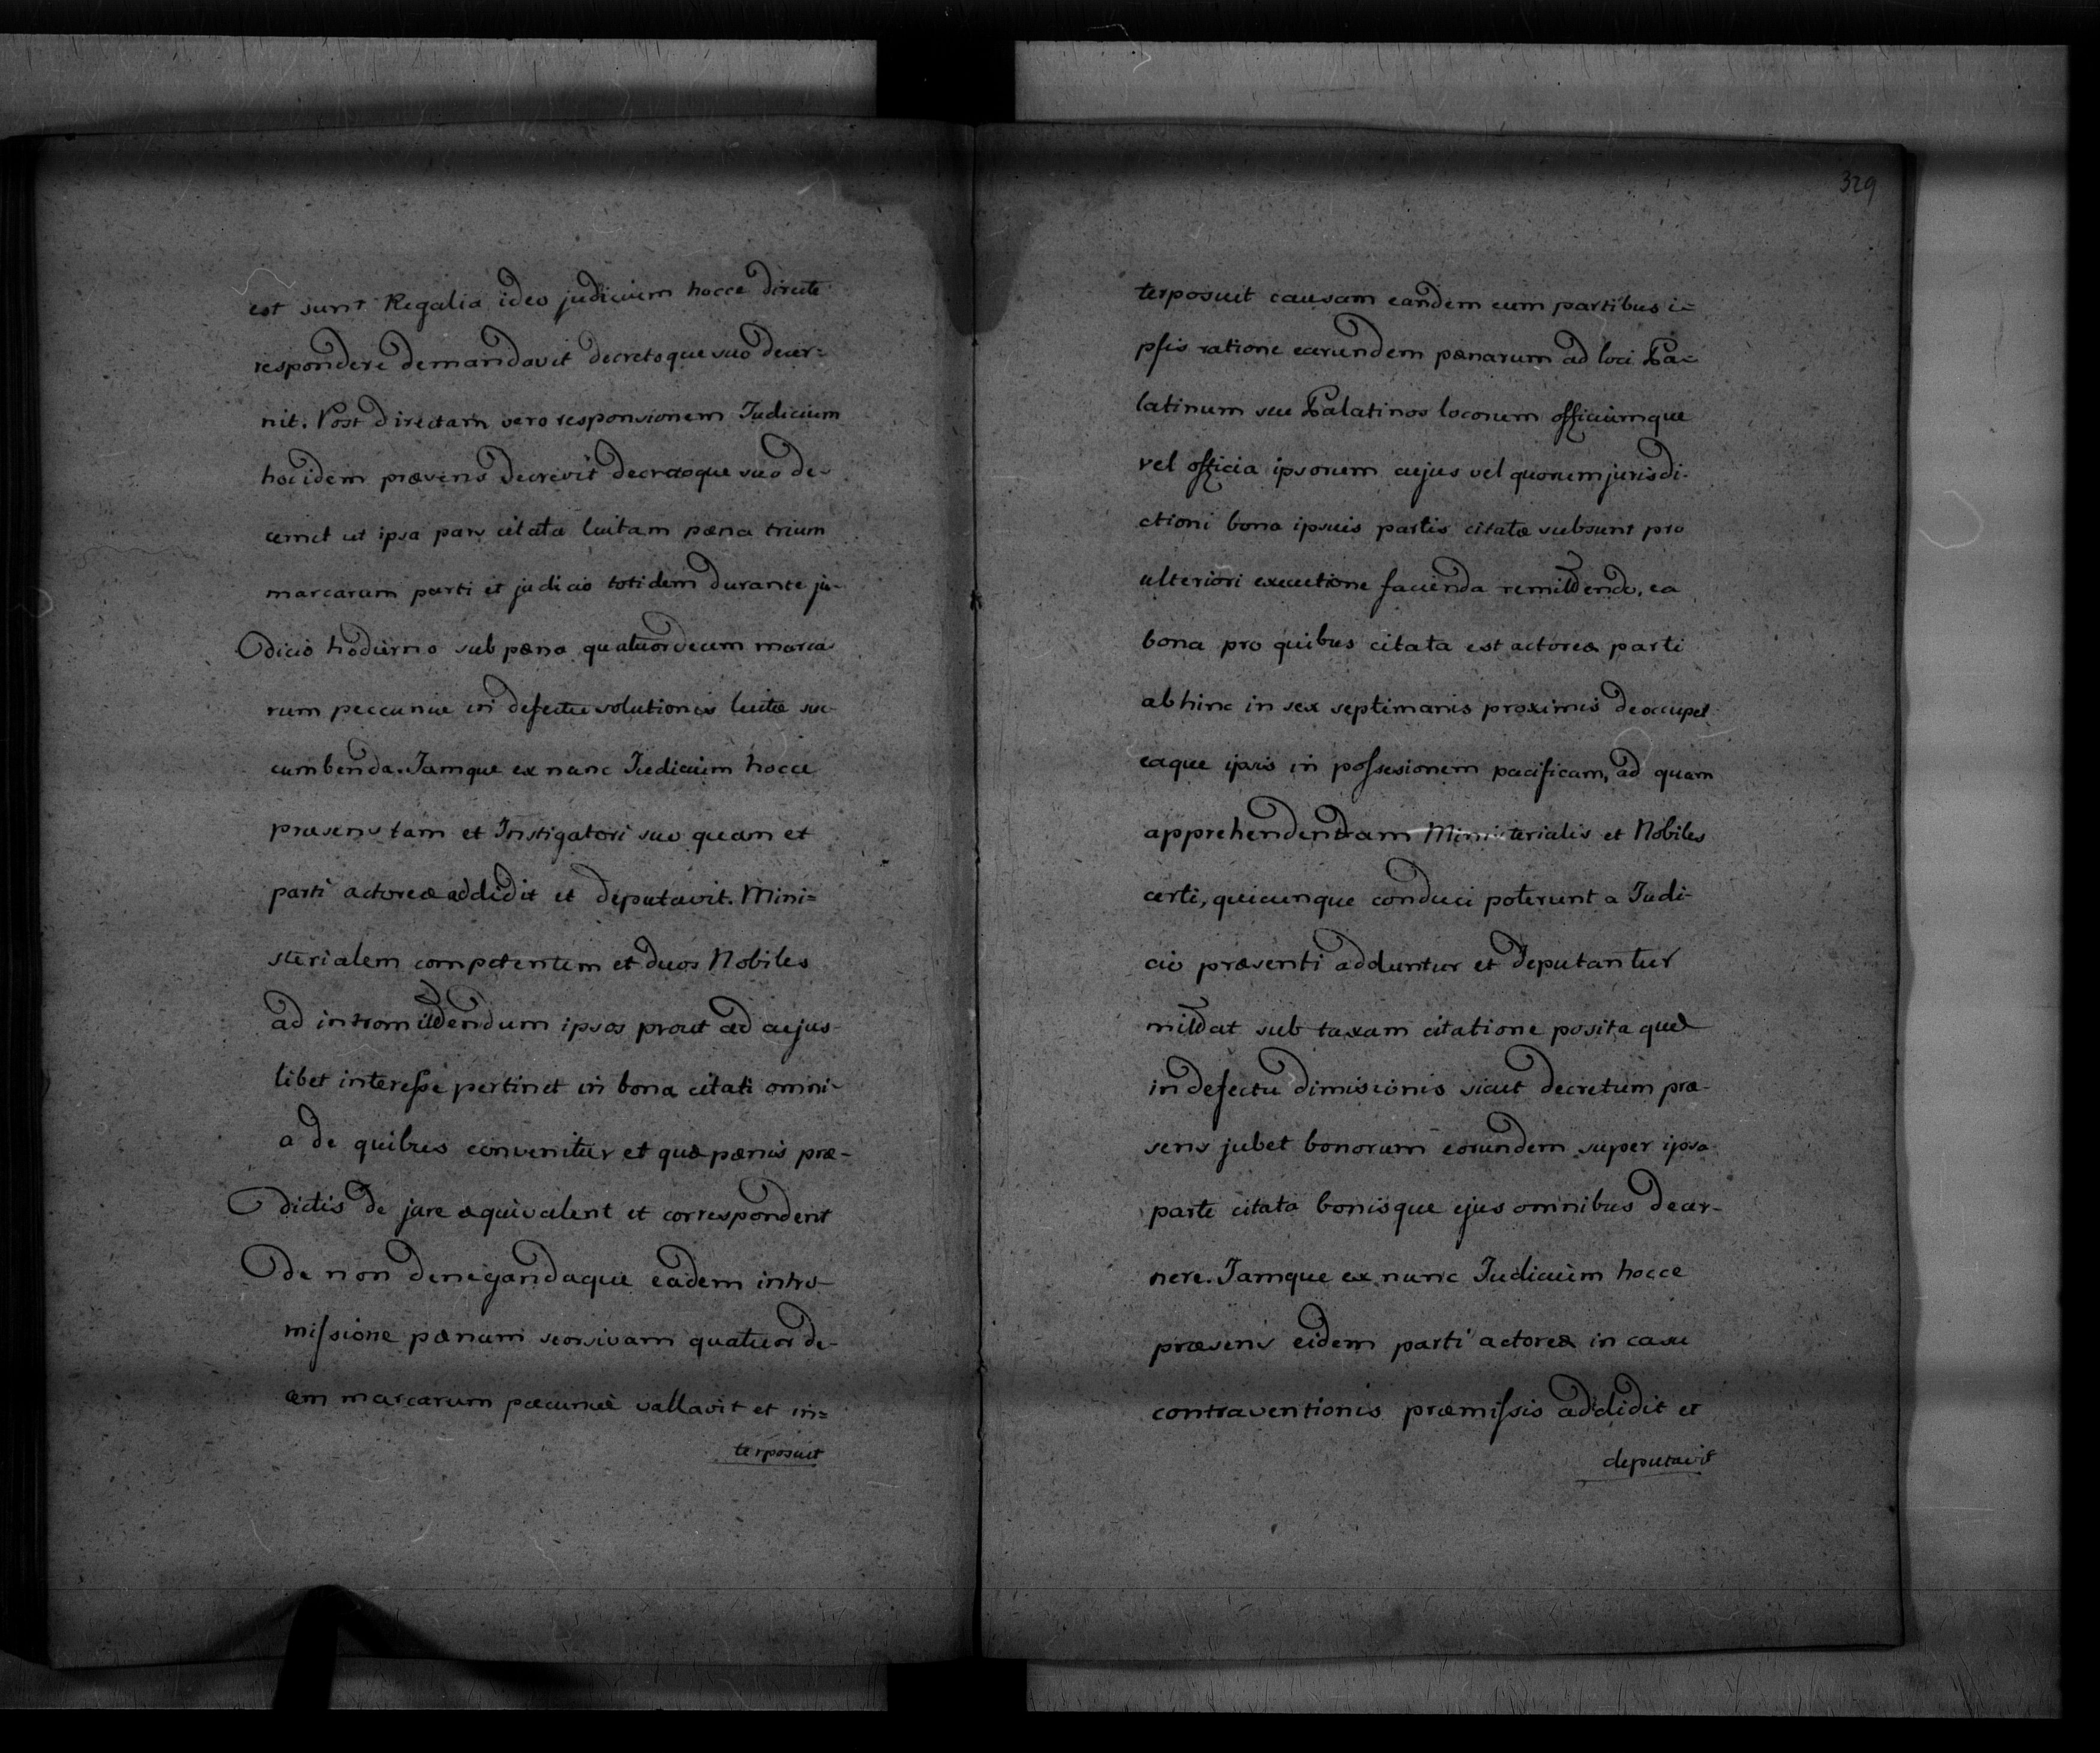 est sunt Regalia ideo judicium hocce directe
respondere demandavit decretoque suo decer=
nit. Post directam vero responsionem Judicium
hocidem præsens decrevit decretoque suo de-
cernet ut ipsa pars citata luitam pæna trium
marcarum parti et judicio totidem durante ju-
dicio hodierno sub pæna quatuordecem marca
rum peccuniæ in defectu solutionis luitæ suc-
cumbenda. Jamque ex nunc Judicium hocce
præsens tam et Instigatori suo quam et
parti actoreæ addidit et deputavit. Mini=
sterialem competentem et duos Nobiles
ad intromittendum ipsos prout ad cujus-
libet interesse pertinet in bona citati omni-
a de quibus convenitur et quæ pænis præ-
dictis de jure æquivalent et correspondent
De non denegandaque eadem intro-
missione pænam seorsivam quatuor de-
cem marcarum pæcuniæ vallavit et in=
terposuit
329
terposuit causam eandem cum partibus i=
psis ratione earundem pænarum ad loci Pa=
latinum seu Palatinos locorum officiumque
vel officia ipsorum cujus vel quorum jurisdi-
ctioni bona ipsius partis citatæ subsunt pro
ulteriori executione facienda remittendo, ea
bona pro quibus citata est actoreæ parti
abhinc in sex septimanis proximis deoccupet
eaque ipsis in possesionem pacificam, ad quam
apprehendendam Ministerialis et Nobiles
certi, quicunque conduci poterunt a Judi-
cio præsenti adduntur et deputantur
mittat sub taxam citatione posita quæ
in defectu dimisionis sicut decretum præ-
sens jubet bonorum eorundem super ipsa
parte citata bonisque ejus omnibus decer-
nere. Jamque ex nunc Judicium hocce
præsens eidem parti actoreæ in casu
contraventionis præmissis addidit et
deputavit